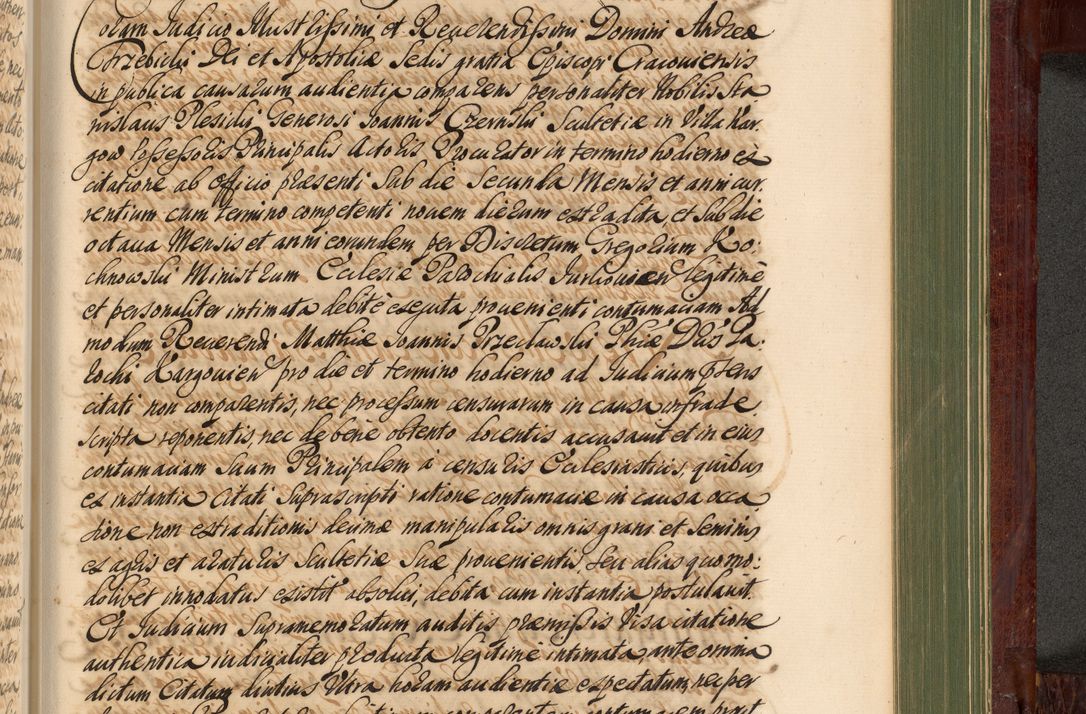 Coram Judicio Illustrissimi et Reverendissimi Domini Andreæ
Trzebicki Dei et Apostolicæ Sedis gratia Episcopi Cracouiensis
in publica causarum audientia comparens personaliter Nobilis Sta
nislaus Plesidis Generosi Joannis Czernski Scultetiæ in Villa Kar,
gow Possessoris Principalis Actoris Procurator in termino hodierno ex
citatione ab officio præsenti sub die Secunda Mensis et anni cur,
rentium cum termino competenti nouem dierum extradita et sub die
octaua Mensis et anni eorundem per Discretum Gregorium Ko:
chnowski Ministrum Ecclesiæ Parochialis legitimè
et personaliter intimata debitè executa prouenienti contumaciam Ad
modum Reverendi Matthiæ Joannis Przecławski Phiæ Dris Pa,
rochi Kargouien pro die et termino hodierno ad Judicium pñens
citati non comparentis, nec processum censurarum in causa infrade,
scripta reponentis, nec de benè obtento docentis accusauit et in eius
contumaciam Suum Principalem à censuris Ecclesiasticis, quibus
ex instantia Citati Suprascripti ratione contumaciæ in causa occa
sione non extraditionis decimæ manipularis omnis grani et Seminis
ex agris et araturis Scultetiæ Suæ prouenientis, seu alias quomo:
dolibet innodatus existit absolui, debita cum instantia postulauit.
Et Judicium Supramemoratum auditis præmissis Visa citatione
authentica iudicialiter producta legitimè intimata, ante omnia
dictum Citatum diutius Vltra horam audientiæ expectatum, nec per